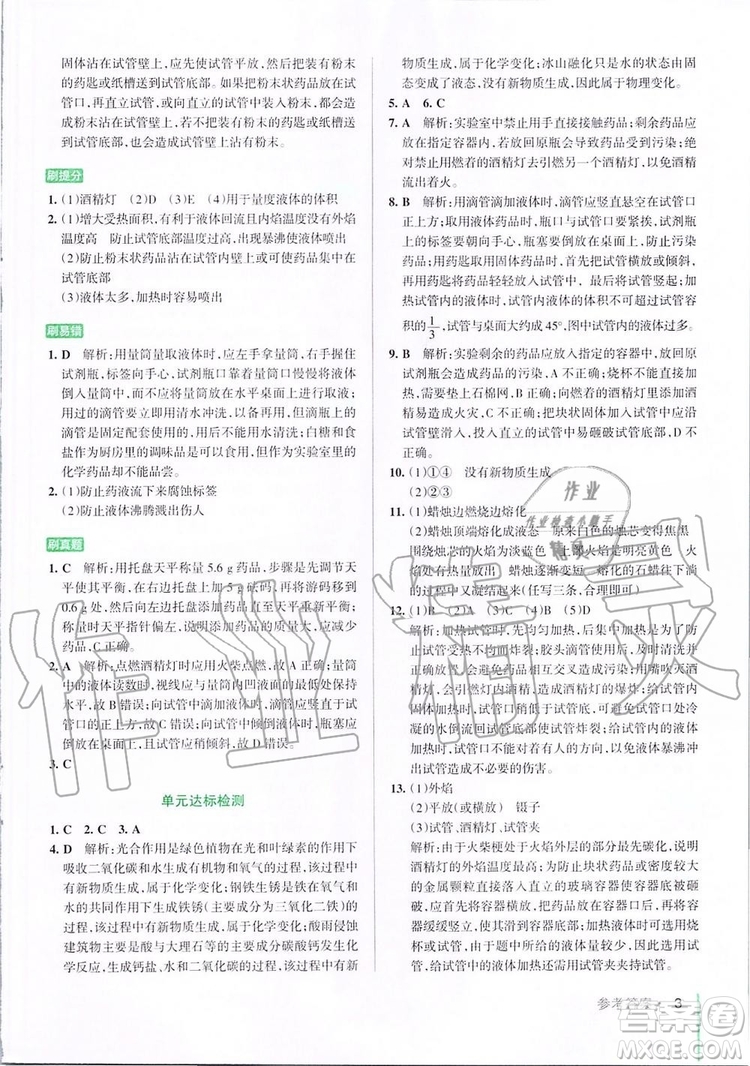 固体沾在试管壁上，应先使试管平放，然后把装有粉末
的药匙或纸槽送到试管底部。如果把粉末状药品放在试
管口，再直立试管，或向直立的试管中装入粉末，都会造
成粉末沾在试管壁上；若不把装有粉末的药匙送到底部，
也会造成试管壁上沾有粉末。
刷提分
1. (1)酒精灯 (2)D (3)E (4)用于量度液体的体积
2. (1)增大受热面积，有利于液体回流且内焰温度没有外焰
温度高 防止试管底部温度过高，出现暴沸使液体喷出
(2)防止粉末状药品沾在试管内壁上或可使药品集中在
试管底部
(3)液体太多，加热时容易喷出
刷易错
1. D 解析：用量筒量取液体时，应左手拿量筒，右手握住
试剂瓶，标签向手心，试剂瓶口靠着量筒口慢慢将液体
倒入量筒内，而不应将量筒放在水平桌面上慢慢倒入液
体；使用过的滴管要立即用清水冲洗，以备再用，而有的
滴管是固定配套使用的，不需要用清水冲洗；白糖和食
盐作为厨房里的调味品是可以品尝的，而实验室里的
化学药品却不能品尝。
2. (1)防止药液流下来腐蚀标签
(2)防止液体沸腾溅出伤人
刷真题
1. C 解析：用托盘天平称量 5.6 g 药品，步骤是先调节天
平使其平衡，在右边托盘上加 5 g 砝码，再将游码移到
0.6 g 处，往左边托盘上加药品至天平重新平衡，所以若
称量时天平指针偏左，说明药品的质量大，应减少药品。
2. A 解析：点燃酒精灯时应用火柴点燃，故 A 正确；量筒
中的液体读数时，视线应与量筒内凹液面的最低处保持
水平，故 B 错误；向试管中滴加液体时，胶头滴管不能伸
入试管内，故 C 错误；向试管中倾倒液体时，瓶塞应倒
放在桌面上，且试管应稍倾斜，故 D 错误。
3. C
单元达标检测
1. C 2. C 3. A
4. D 解析：光合作用是绿色植物在光和叶绿素的作用下
吸收二氧化碳和水生成有机物和氧气的过程，该过程中
有新物质生成，属于化学变化；钢铁生锈是铁与氧气和
水的共同作用下生成铁锈（主要成分为三氧化二铁）的
过程，该过程中有新物质生成，属于化学变化；酸雨侵蚀
建筑物主要为酸与大理石等的主要成分碳酸钙发生化
学反应，生成钙盐、水和二氧化碳的过程，该过程中有新
物质生成，属于化学变化；冰山融化只是水的状态由固
态变成了液态，没有新物质生成，因此属于物理变化。
5. A 6. C
7. A 解析：实验室中禁止用手直接接触药品；剩余药品应
放在指定容器内，不能放回原试剂瓶，防止污染药品；
禁止用燃着的酒精灯去引燃另一只酒精灯，防止酒精
流出着火。
8. B 解析：用滴管滴加液体时，滴管应竖直悬空在试管口
正上方；取用液体药品时，瓶口与试管口要紧挨，试剂瓶
上的标签要正对手心，瓶塞要倒放在桌面上，防止污染
药品；往试管里取用固体药品时，首先把试管横放或倾斜，
再用药匙将药品轻轻放入试管中，最后将试管竖起；加
热试管内的液体时，试管内液体的体积不能超过试管容积
的1/3，试管与桌面大约成 45°，图中试管内的液体过多。
9. B 解析：实验剩余的药品应放入指定的容器中，放回原
试剂瓶易造成药品污染，A 不正确；烧杯不能直接加热，
需要垫上石棉网，B 正确；向燃着的酒精灯内添加酒精
易造成火灾，C 不正确；把块状固体加入试管中应沿
试管壁滑入，投入直立的试管中易砸破试管底部，D 不
正确。
10. (1)①④ 没有新物质生成
(2)②③
11. (1)蜡烛边燃烧边熔化
(2)蜡烛顶端熔化成液态 原来白色的烛芯变得焦黑
围绕烛芯的火焰为淡蓝色 上部火焰是明亮黄色
火焰有热量放出 蜡烛逐渐变短 熔化的石蜡往下淌
的过程中又凝结起来（任写三条，合理即可）
12. (1)B (2)A (4)D (5)D
解析：加热试管时，先均匀加热，再集中加热，可防止
试管受热不均匀而炸裂；胶头滴管使用后及时清洗并
放置可以避免药品相互交叉造成污染；用嘴吹灭酒
精灯会引燃灯内酒精，造成酒精灯的爆炸，给试管内
固体加热时，试管口略向下倾斜，可以防止试管口处冷
凝的水倒流回试管底部使试管炸裂；给试管内的液体
加热时，试管口不能对着有人的方向，以免液体暴沸冲
出试管造成不必要的伤害。
13. (1)外焰
(2)平放(或横放) 镊子
(3)试管、酒精灯、试管夹
解析：由于火柴梗处于火焰外层的部分最先碳化，说
明酒精灯的外焰温度最高；为防止块状药品或密度较大
的金属颗粒打破直立的玻璃容器的容器底或壁，应将
容器横放，把药品放入容器口以后，再把容器
缓缓竖立，使其滑到容器底部。加热液体可以使用烧
杯或试管，由于题中所给的液体量较少，因此应该选
择使用试管，加热试管时需要使用试管夹夹持试管。
参考答案 3
作业
作业检查小助手
精灵
作业精灵
答案圈
MXQE.COM